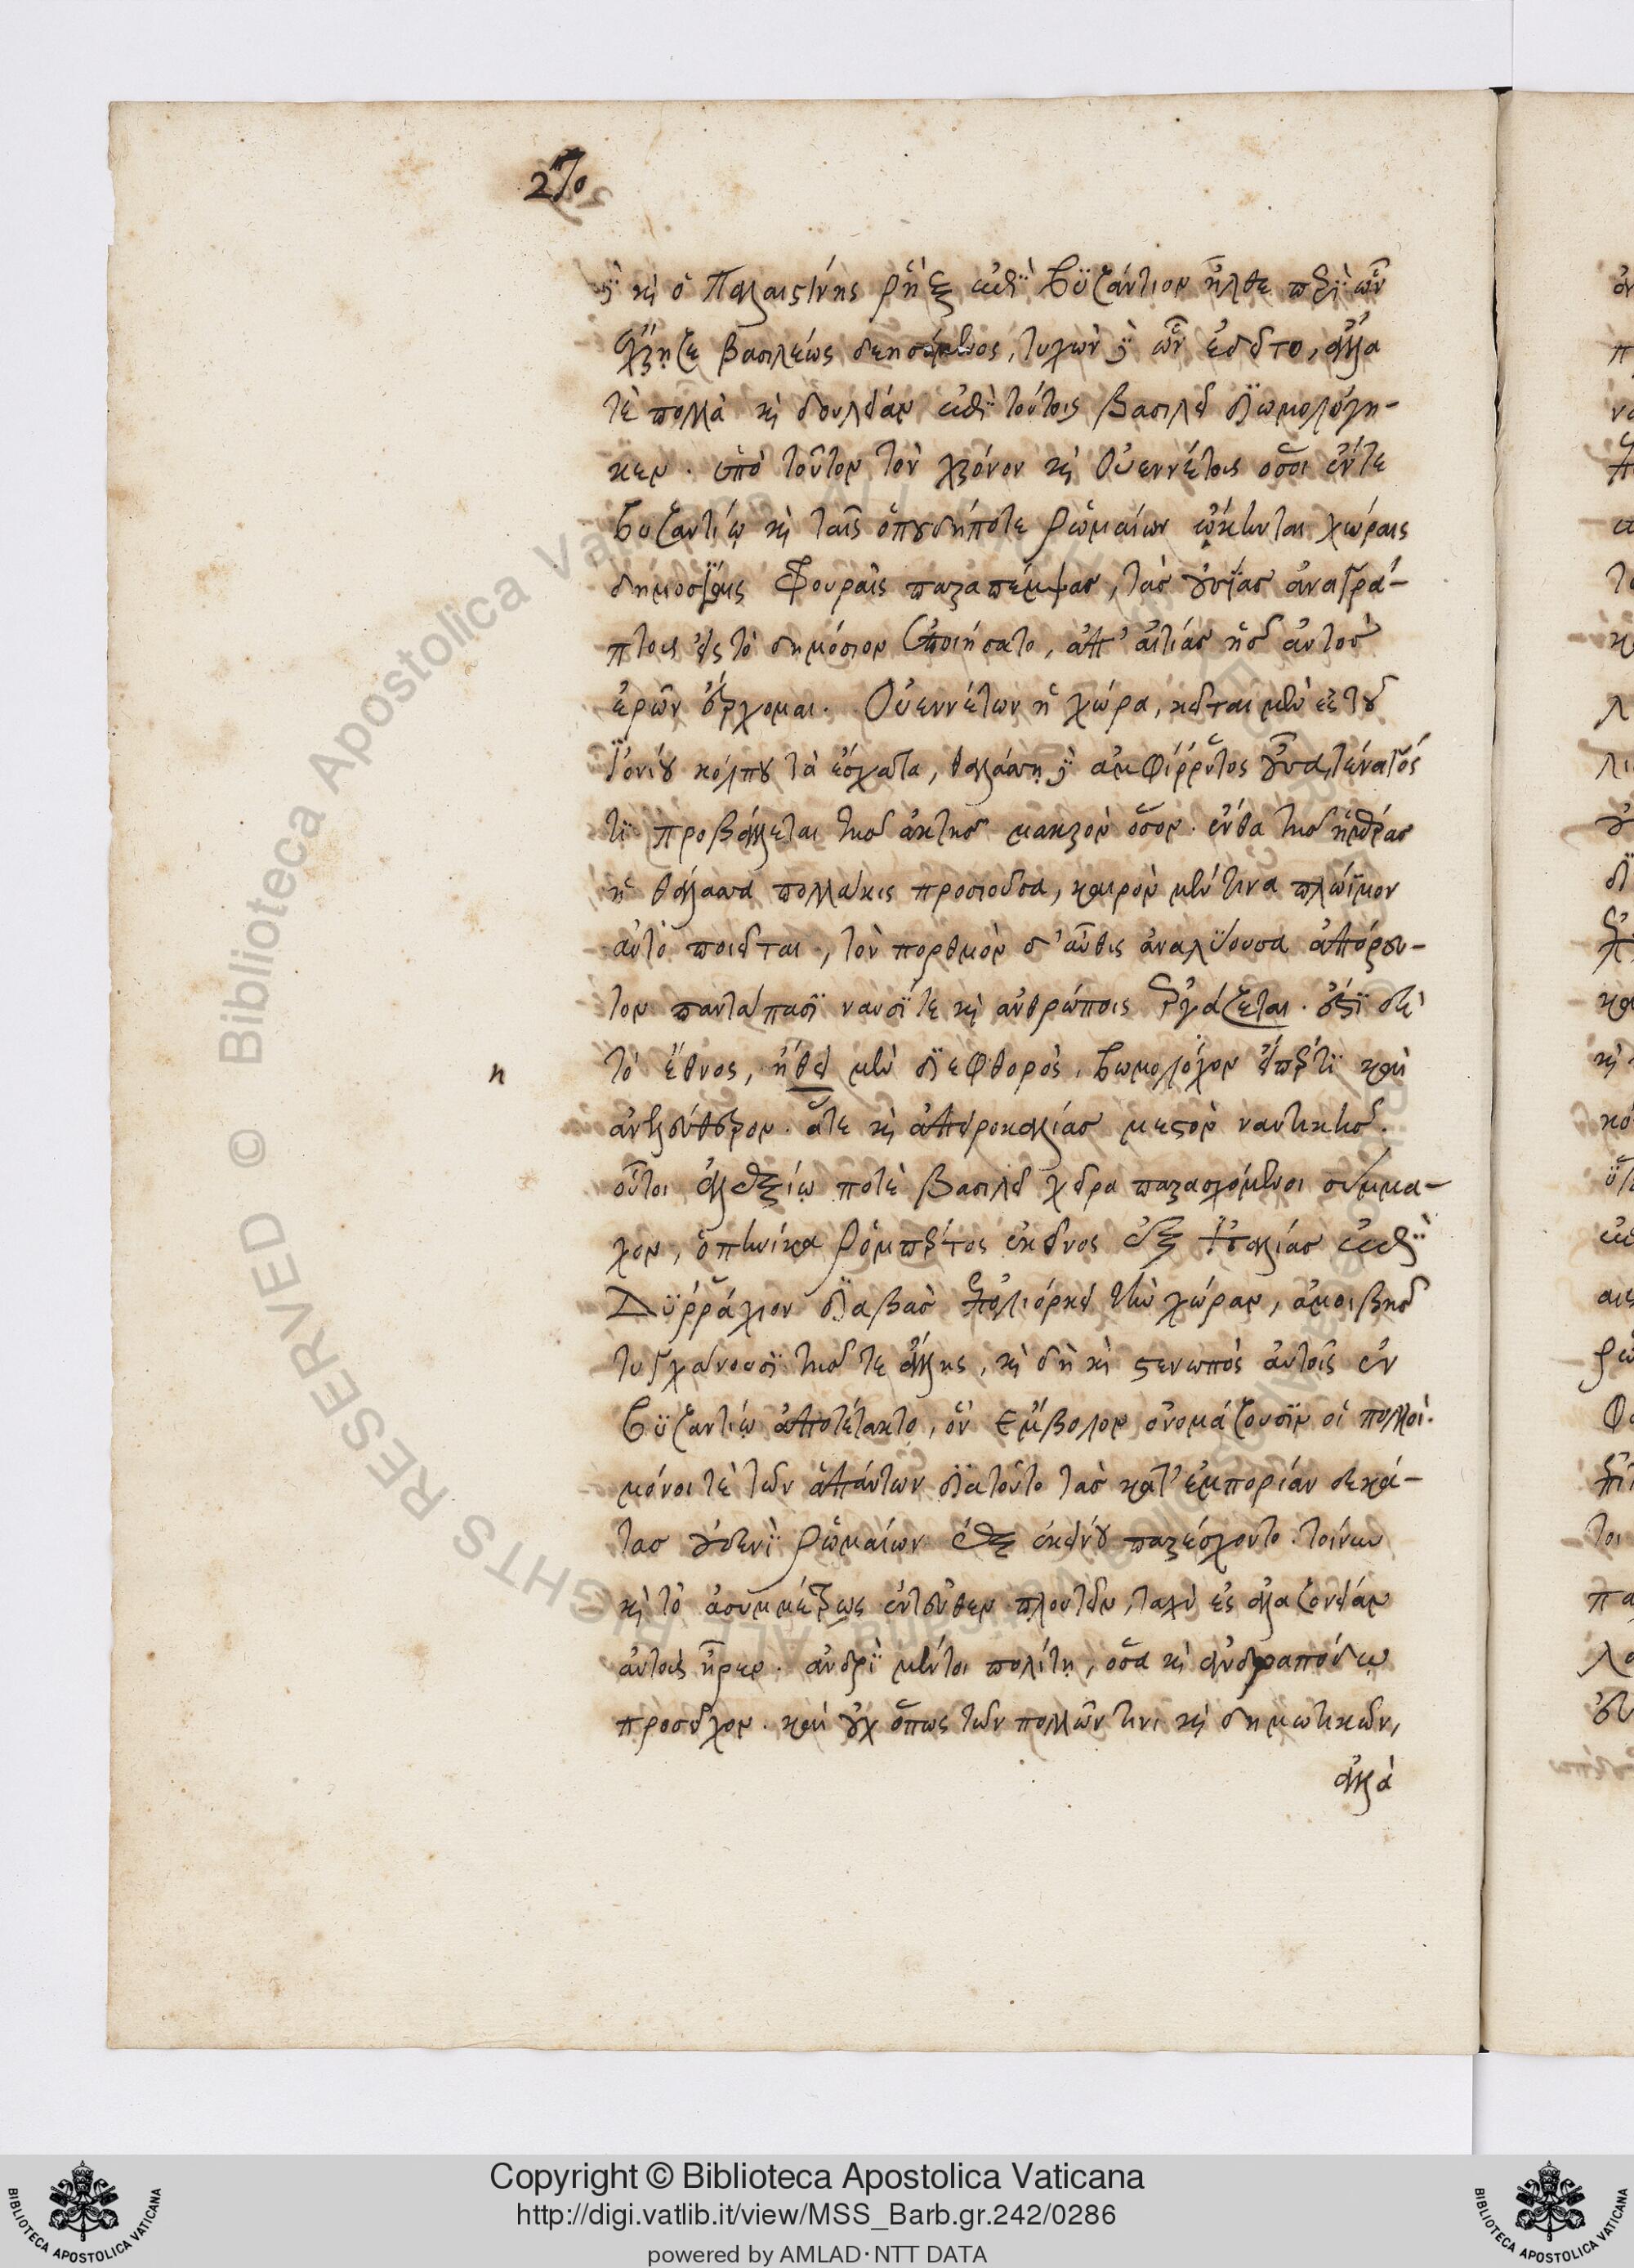 270
δὲ καὶ ὁ Παλαιστίνης ῥὴξ ἐπὶ Βυζάντιον ἦλθε περὶ ὧν
ἔχρῃζε βασιλέως δεησόμενος, τυχὼν δὲ ὧν ἐδεῖτο, ἄλλα
τὲ πολλὰ καὶ δουλείαν ἐπὶ τούτοις βασιλεῖ διωμολόγη-
κεν. ὑπὸ τοῦτον τὸν χρόνον καὶ Οὐεννέτοις ὅσοι ἔν τε
Βυζαντίῳ καὶ ταῖς ὁπουδήποτε Ῥωμαίων ᾤκηνται χώραις
δημοσίαις φρουραῖς παραπέμψας, τὰς οὐσίας ἀναγρά-
πτους εἰς τὸ δημόσιον ἐποιήσατο, ἀπ' αἰτίας ἧς αὐτὸς
ἐρῶν ἔρχομαι. Οὐεννέτων ἡ χώρα, κεῖται μὲν ἐς τοῦ
Ἰονίου κόλπου τὰ ἔσχατα, θαλάσσῃ δὲ ἀμφίρρυτος οὖσα, τέναγός
τι προβάλλεται τῆς ἀκτῆς μακρὸν ὅσον. ἔνθα τῆς ἡμέρας
ἡ θάλασσα πολλάκις προσιοῦσα, καιρὸν μέν τινα πλώϊμον
αὐτὸ ποιεῖται, τὸν πορθμὸν δ' αὖθις ἀναλύουσα ἀπόρευ-
τον παντάπασι ναυσί τε καὶ ἀνθρώποις ἐργάζεται. ἔστι δὲ
τὸ ἔθνος, ἤθει μὲν διεφθορὸς, βωμολόχον εἴπερ τι καὶ
ἀνελεύθερον. ἅτε καὶ ἀπειροκαλίας μεστὸν ναυτικῆς.
οὗτοι Ἀλεξίῳ ποτὲ βασιλεῖ χεῖρα παρασχόμενοι σύμμα-
χον, ὁπηνίκα Ῥομπέρτος ἐκεῖνος ἐξ Ἰταλίας ἐπὶ
Δυρράχιον διαβὰς ἐπολιόρκει τὴν χώραν, ἀμοιβῆς
τυγχάνουσι τῆς τε ἄλλης, καὶ δὴ καὶ στενωπὸς αὐτοῖς ἐν
Βυζαντίῳ ἀποτέτακτο, ὃν Ἔμβολον ὀνομάζουσιν οἱ πολλοί.
μόνοι τὲ τῶν ἁπάντων διατοῦτο τὰς κατ' ἐμπορίαν δεκά-
τας οὐδενὶ Ῥωμαίων ἐξ ἐκείνου παρέσχοντο. τοίνυν
καὶ τὸ ἀσυμμέτρως ἐντεῦθεν πλουτεῖν, ταχὺ ἐς ἀλαζονείαν
αὐτοὺς ἦρεν. ἀνδρὶ μέντοι πολίτῃ, ὅσα καὶ ἀνδραπόδῳ
προσεῖχον. καὶ οὐχ ὅπως τῶν πολλῶν τινι καὶ δημωτικῶν,
ἀλλὰ
Copyright © Biblioteca Apostolica Vaticana
http://digi.vatlib.it/view/MSS_Barb.gr.242/0286
powered by AMLAD·NTT DATA